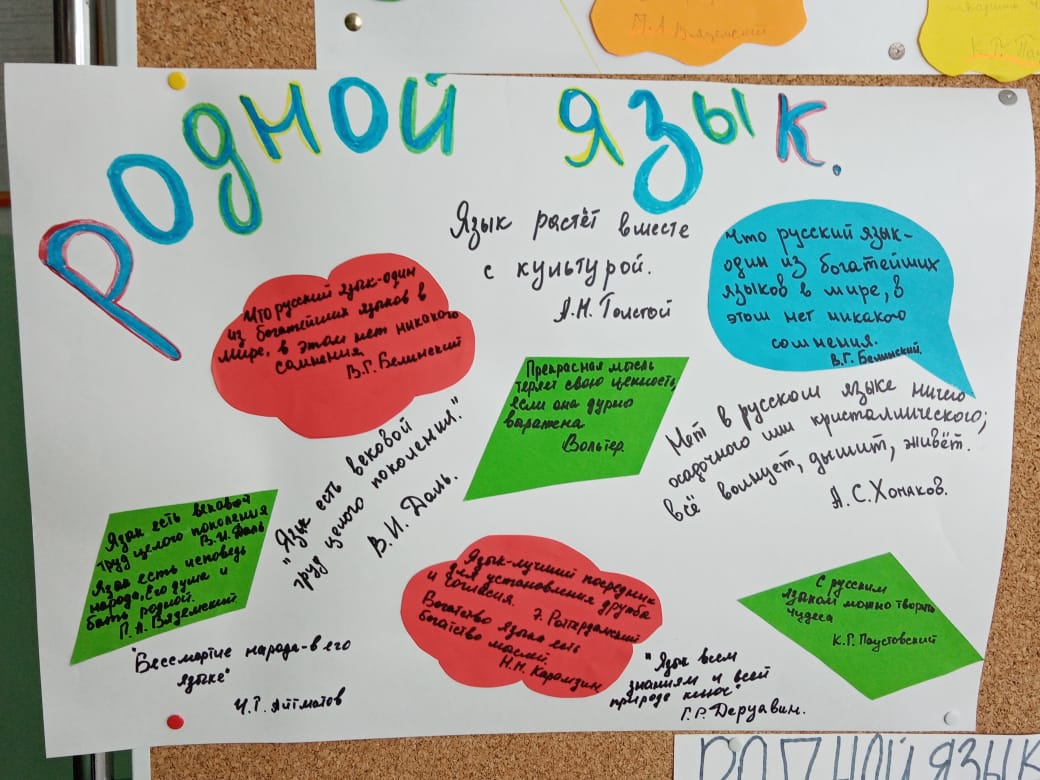 М.А Вяземский
К.Г. Пау
Родной язык.
Язык растёт вместе
с культурой.
А.Н. Толстой
Что русский язык-один
из богатейших языков в
мире, в этом нет никакого
сомнения.
В.Г. Белинский
Что русский язык-
один из богатейших
языков в мире, в
этом нет никакого
сомнения.
В.Г. Белинский.
Прекрасная мысль
теряет свою ценность,
если она дурно
выражена
Вольтер.
Нет в русском языке ничего
осадочного или кристаллического;
всё волнует, дышит, живёт.
А.С.Хомяков.
"Язык есть вековой
труд целого поколения".
В.И. Даль.
Язык есть вековой
труд целого поколения
В.И. Даль
Язык есть исповедь
народа, Его душа и
быто родной.
П.А. Вяземский
Язык-лучший посредник
для установления дружбы
и согласия. Э. Роттердамский
Богатство языка есть
богатство мыслей.
Н.М. Карамзин
С русским
языком можно творить
чудеса
К.Г. Паустовский
"Бессмертие народа-в его
языке"
Ч.Т. Айтматов
"Язык всем
знаниям и всей
природе ключ"
Г.Р. Державин.
РОДНОЙ ЯЗЫК